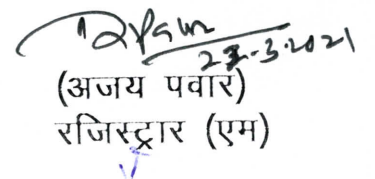 23.3.2021
(अजय पवार)
रजिस्ट्रार (एम)